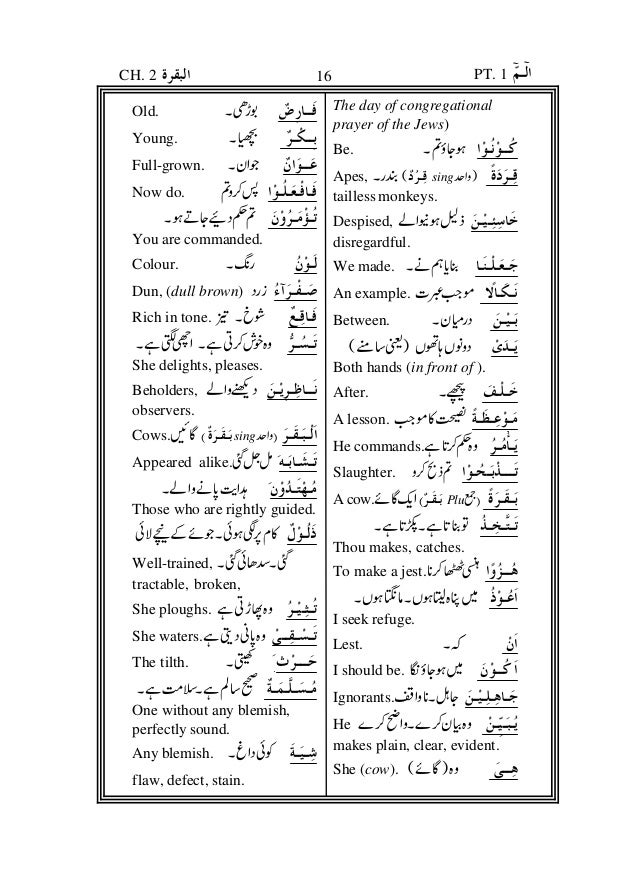 CH. 2 البقرة 16 PT. 1 الٓمّٓ
The day of congregational
prayer of the Jews)
Be. كُوْنُوْا ہو جاؤ تم۔
Apes, قِرَدَةً (واحد sing قِرْدٌ) بندر۔
tailless monkeys.
Despised, خَاسِئِيْنَ ذلیل ہونیوالے
disregardful.
We made. جَعَلْنَا بنایا ہم نے۔
An example. نَكَالًا موجب عبرت
Between. بَيْنَ درمیان۔
يَدَىْ دونوں ہاتھوں (یعنی سامنے)
Both hands (in front of ).
After. خَلْفَ پیچھے۔
A lesson. مَوْعِظَةً نصیحت کا موجب
He commands. يَأْمُرُ وہ حکم کرتا ہے
Slaughter. تَذْبَحُوْا تم ذبح کرو
A cow. بَقَرَةً (جمع Plu بَقَرٌ) ایک گائے۔
تَتَّخِذُ تو بناتا ہے۔ پکڑتا ہے۔
Thou makes, catches.
To make a jest. هُزُوًا ہنسی ٹھٹھا کرنا
اَعُوْذُ میں پناہ لیتا ہوں۔ مانگتا ہوں۔
I seek refuge.
Lest. اَنْ کہ۔
I should be. اَكُوْنَ میں ہو جاؤنگا
Ignorants. جَاهِلِيْنَ جاہل۔ ناواقف۔
He يُبَيِّنْ وہ بیان کرے۔ واضح کرے
makes plain, clear, evident.
She (cow). هِىَ وہ (گائے)
Old. فَارِضٌ بوڑھی۔
Young. بِكْرٌ بچھیا۔
Full-grown. عَوَانٌ جوان۔
Now do. فَافْعَلُوْا پس کرو تم
تُؤْمَرُوْنَ تم حکم دیئے جاتے ہو۔
You are commanded.
Colour. لَوْنُ رنگ۔
Dun, (dull brown) صَفْرَآءُ زرد
Rich in tone. فَاقِعٌ شوخ۔ تیز
تَسُرُّ وہ خوش کرتی ہے۔ اچھی لگتی ہے۔
She delights, pleases.
Beholders, نَاظِرِيْنَ دیکھنے والے
observers.
Cows. اَلْبَقَرَ (واحد sing بَقَرَةٌ) گائیں
Appeared alike. تَشَابَهَ مل جل گئی
مُهْتَدُوْنَ ہدایت پانے والے۔
Those who are rightly guided.
ذَلُوْلٌ کام پر لگی ہوئی۔ جوئے کے نیچے لائی
Well-trained, گئی۔ سدھائی گئی۔
tractable, broken,
She ploughs. تُثِيْرُ وہ پھاڑتی ہے
She waters. تَسْقِىْ وہ پانی دیتی ہے
The tilth. حَرْثَ کھیتی۔
مُسَلَّمَةٌ صحیح سالم ہے۔ سلامت ہے۔
One without any blemish,
perfectly sound.
Any blemish. شِيَةَ کوئی داغ۔
flaw, defect, stain.